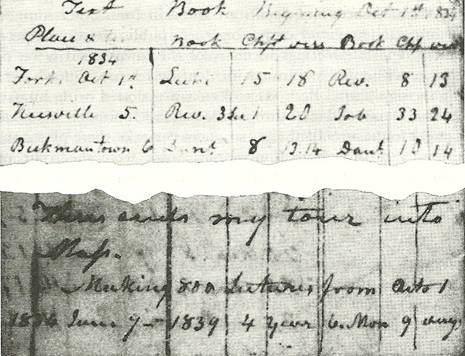 Text Book Beginning Oct 1st 1834
Place & Book Chpt vers Book Chp vers
1834
Forks Oct 1st Luke 15 18 Rev. 8 13
Keesville 5. Rev. 3d 1 20 Job 33 24
Beekmantown 6 Danl. 8 13.14 Danl. 10 14
Thus ends my tour into
Mass.
Making 800 Lectures from Octo 1
1834 June 7 - 1839 4 year 6. Mon 9 days